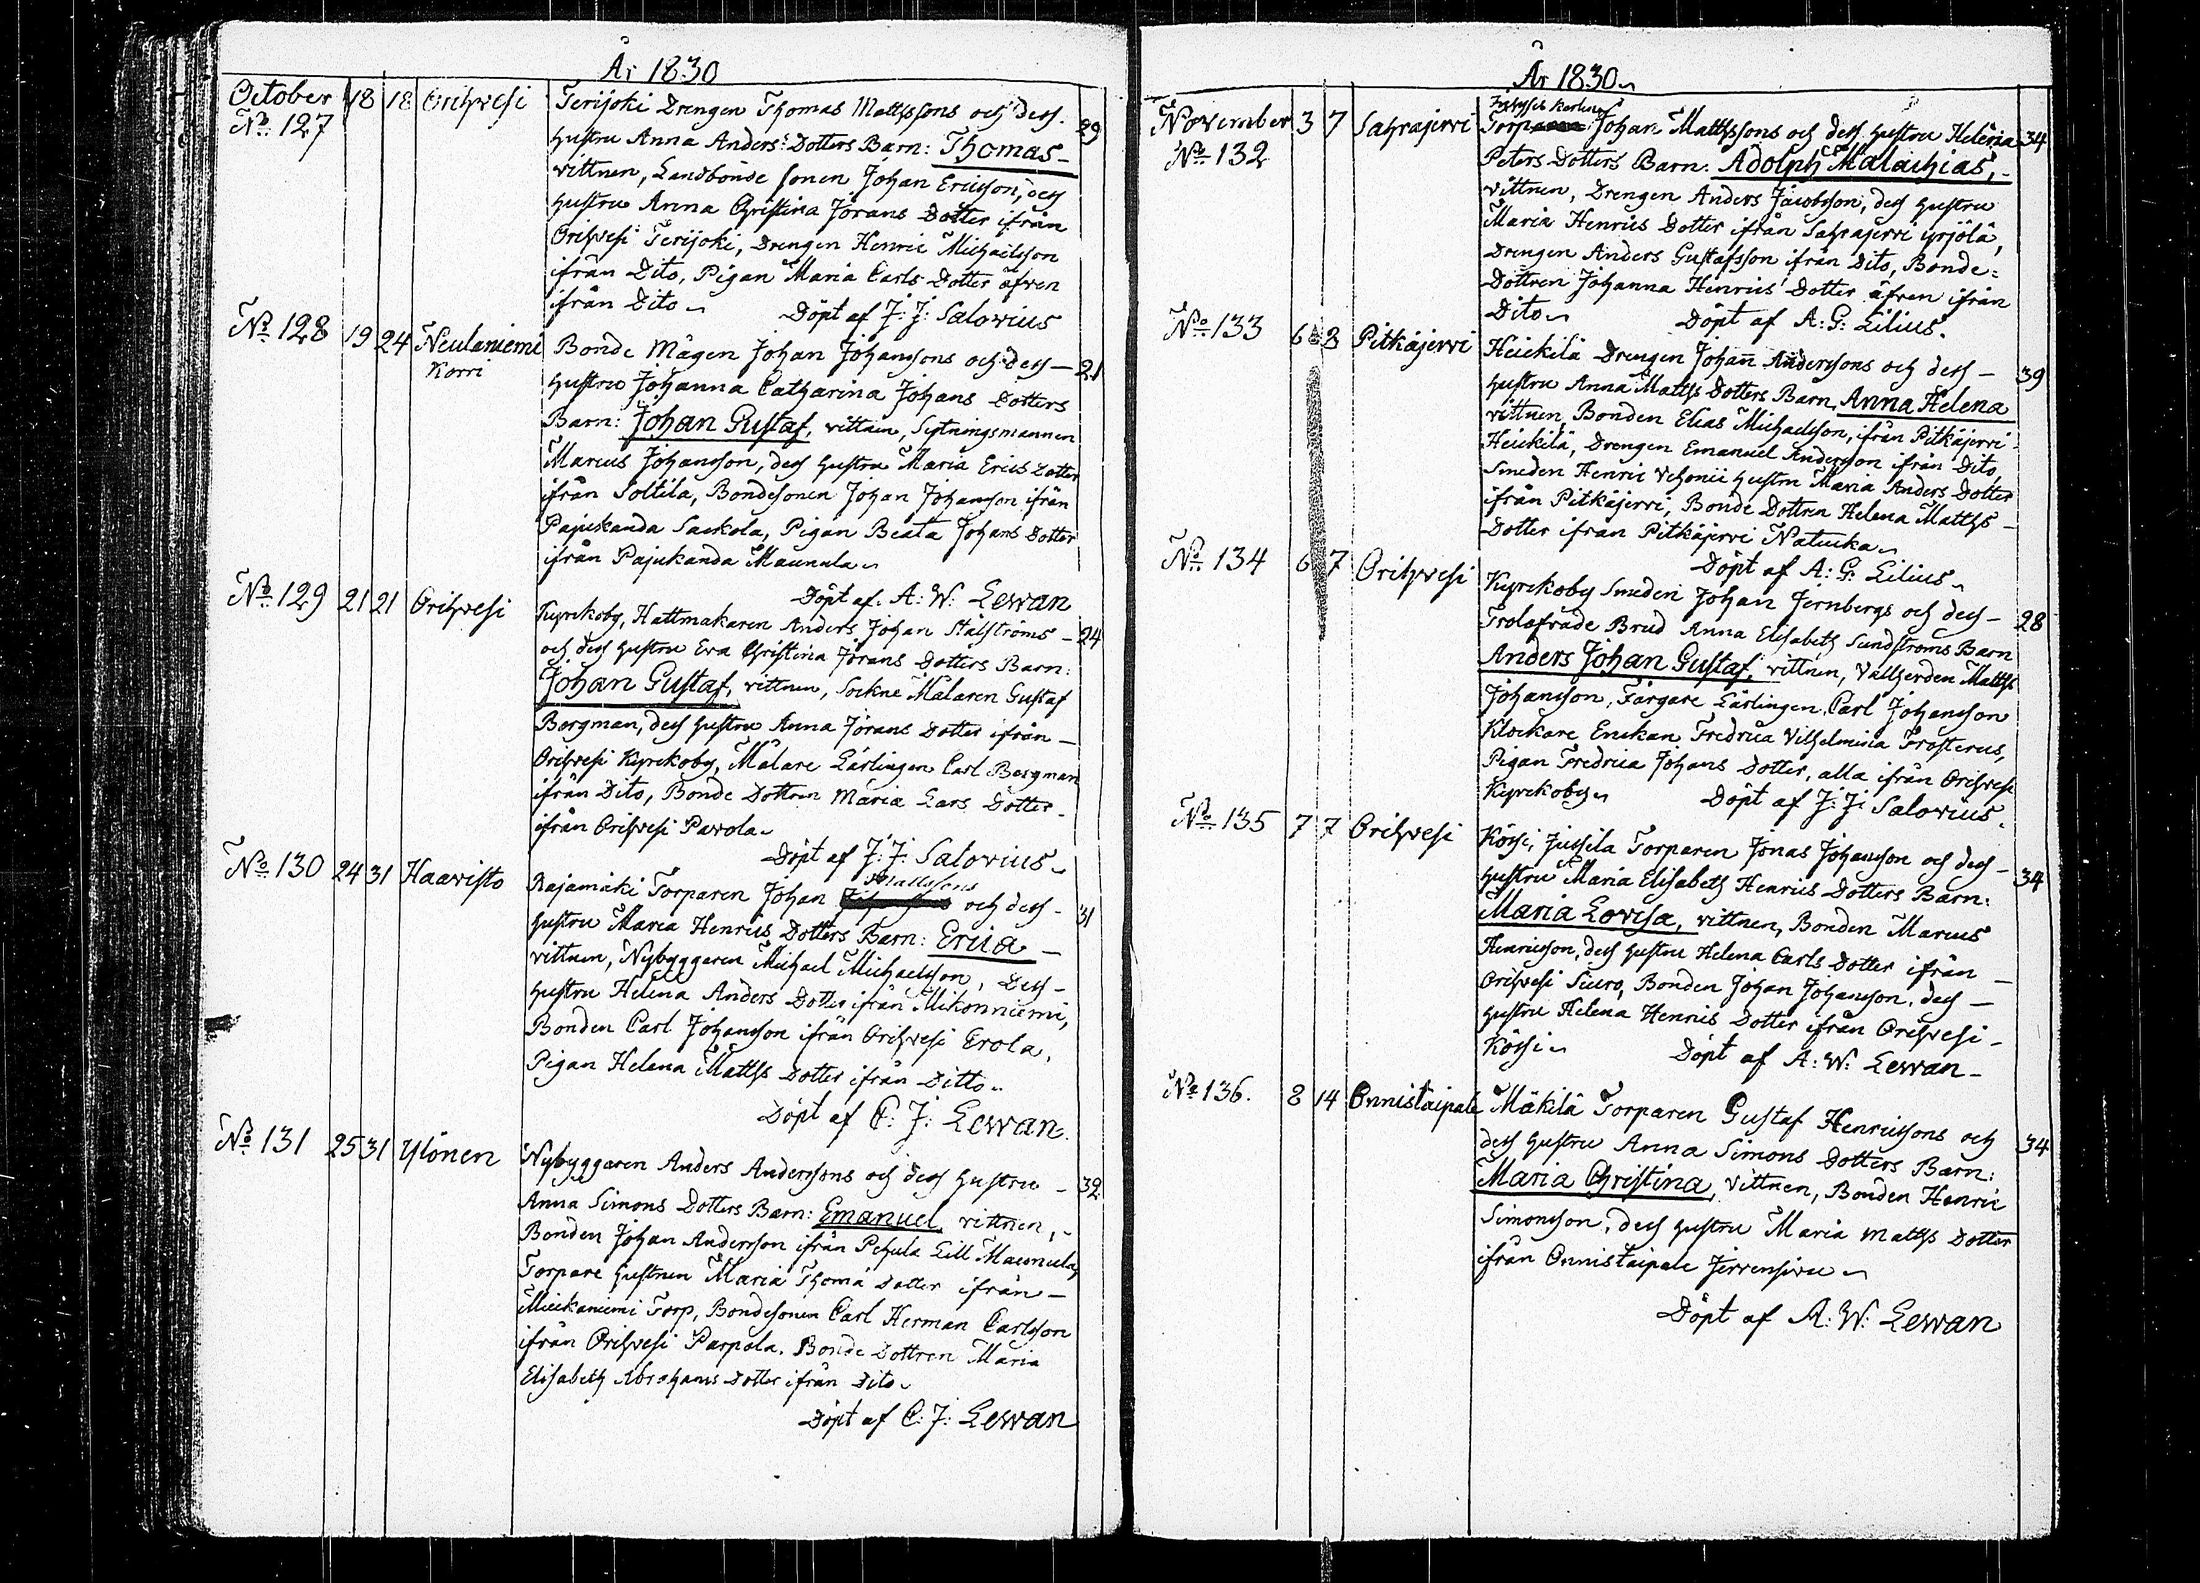 År 1830
October 18 18 Orihvesi Terijoki Drengen Thomas Mattssons och dess 29
No 127 hustru Anna Anders Dotters Barn: Thomas
vittnen, Landbonde sonen Johan Ericsson, dess
hustru Anna Christina Jörans Dotter ifrån
Orihvesi Terijoki, Drengen Henric Michaelsson
ifrån Dito, Pigan Maria Carls Dotter äfven
ifrån Dito
Döpt af J: J: Salovius
No 128 19 24 Neulaniemi Bonde Mågen Johan Johanssons och dess 21
Korri hustru Johanna Catharina Johans Dotters
Barn: Johan Gustaf, vittnen, Sytningsmannen
Marcus Johansson, dess hustru Maria Erics Dotter
ifrån Soltila, Bondesonen Johan Johansson ifrån
Pajukanda Sackola, Pigan Beata Johans Dotter
ifrån Pajukanda Maunula
Döpt af A: W: Lewan
No 129 21 21 Orihvesi Kyrckoby, Hattmakaren Anders Johan Stålströms 24
och dess hustru Eva Christina Jörans Dotters Barn:
Johan Gustaf, vittnen, Sockne Målaren Gustaf
Bergman, dess hustru Anna Jörans Dotter ifrån
Orihvesi Kyrckoby, Målare Lärlingen Carl Bergman
ifrån Dito, Bonde Dottren Maria Lars Dotter
ifrån Orihvesi Pavola
Döpt af J: J: Salovius
No 130 24 31 Haavisto Rajamäki Torparen Johan Mattssons och dess 31
hustru Maria Henrics Dotters Barn: Erica
vittnen, Nybyggaren Michael Michaelsson, dess
hustru Helena Anders Dotter ifrån Mikonniemi,
Bonden Carl Johansson ifrån Orihvesi Erola,
Pigan Helena Matths Dotter ifrån Ditto
Döpt af C: J: Lewan
No 131 25 31 Ylönen Nybyggaren Anders Anderssons och dess hustru 32
Anna Simons Dotters Barn: Emanuel, vittnen,
Bonden Johan Andersson ifrån Pehula Lill Maunula,
Torpare hustrun Maria Thoma Dotter ifrån
Mieikaniemi Torp, Bondesonen Carl Herman Carlsson
ifrån Orihvesi Parpola, Bonde Dottren Maria
Elisabeth Abrahams Dotter ifrån Dito
Döpt af C: J: Lewan
År 1830
November 3 7 Sahrajerri Johan Matthssons och dess hustru Helena 34
No 132 Peters Dotters Barn: Adolph Malachias,
vittnen, Drengen Anders Jacobsson, dess hustru
Maria Henrics Dotter ifrån Sahrajerri Yrjölä,
Drengen Anders Gustafsson ifrån Dito, Bonde
Dottren Johanna Henrics Dotter äfven ifrån
Dito
Döpt af A: G: Lilius
No 133 6 8 Pitkäjerri Heickilä Drengen Johan Anderssons och dess 39
hustru Anna Matths Dotters Barn, Anna Helena
vittnen, Bonden Elias Michaelsson, ifrån Pitkäjerri
Heickilä, Drengen Emanuel Andersson ifrån Dito,
Smeden Henric hustru Maria Anders Dotter
ifrån Pitkäjerri, Bonde Dottren Helena Matths
Dotter ifrån Pitkäjerri Natucka
Döpt af A: G: Lilius
No 134 6 7 Orihvesi Kyrckoby Smeden Johan Jernbergs och dess 28
Trolofvade Brud Anna Elisabeth Sundströms Barn
Anders Johan Gustaf, vittnen, Vallherden Matths
Johansson, Färgare Lärlingen, Carl Johansson
Klockare Enckan Fredrica Vilhelmina Frosterus,
Pigan Fredrica Johans Dotter, alla ifrån Orihvesi
Kyrckoby
Döpt af J: J: Salovius
No 135 7 7 Orihvesi Körsi, Jussila Torparen Jonas Johansson och dess 34
hustru Maria Elisabeth Henrics Dotters Barn:
Maria Lovisa, vittnen, Bonden Marcus
Henricsson, dess hustru Helena Carls Dotter ifrån
Orihvesi Siuro, Bonden Johan Johansson, dess
hustru Helena Henrics Dotter ifrån Orihvesi
Körsi
Döpt af A: W: Lewan
No 136. 8 14 Onnistaipale Mäkilä Torparen Gustaf Henricssons och 34
dess hustru Anna Simons Dotters Barn:
Maria Christina, vittnen, Bonden Henric
Simonsson, dess hustru Maria Matths Dotter
ifrån Onnistaipale Jervensivu
Döpt af A: W: Lewan